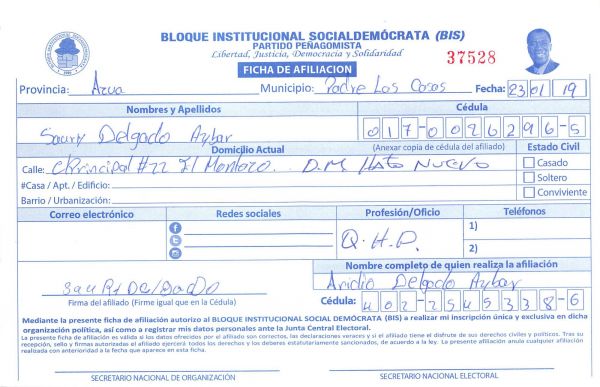 BLOQUE INSTITUCIONAL SOCIALDEMÓCRATA (BIS)
PARTIDO PEÑAGOMISTA
Libertad, Justicia, Democracia y Solidaridad
37528
FICHA DE AFILIACION
Provincia: Azua Municipio: Padre Las Casas Fecha: 23 01 19
Nombres y Apellidos Cédula
Saury Delgado Aybar 017-0026296-5
Domicilio Actual (Anexar copia de cédula del afiliado) Estado Civil
Calle: C/Principal #22 El Montazo. D.M. Hato Nuevo Casado
#Casa / Apt. / Edificio: Soltero
Barrio / Urbanización: Conviviente
Correo electrónico Redes sociales Profesión/Oficio Teléfonos
Q.H.D. 1)
2)
Nombre completo de quien realiza la afiliación
Saury Delgado Aridio Delgado Aybar
Firma del afiliado (Firme igual que en la Cédula) Cédula: 402-2545338-6
Mediante la presente ficha de afiliación autorizo al BLOQUE INSTITUCIONAL SOCIAL DEMÓCRATA (BIS) a realizar mi inscripción única y exclusiva en dicha
organización política, así como a registrar mis datos personales ante la Junta Central Electoral.
La presente ficha de afiliación es válida si los datos ofrecidos por el afiliado son correctos, las declaraciones veraces y si el afiliado tiene el disfrute de sus derechos civiles y políticos. Tras su
recepción, sello y firmas autorizadas el afiliado ejercerá todos los derechos y deberes estatutariamente sancionados, de acuerdo a la ley. La presente afiliación anula cualquier afiliación
realizada con anterioridad a la fecha que aparece en esta ficha.
SECRETARIO NACIONAL DE ORGANIZACIÓN SECRETARIO NACIONAL ELECTORAL